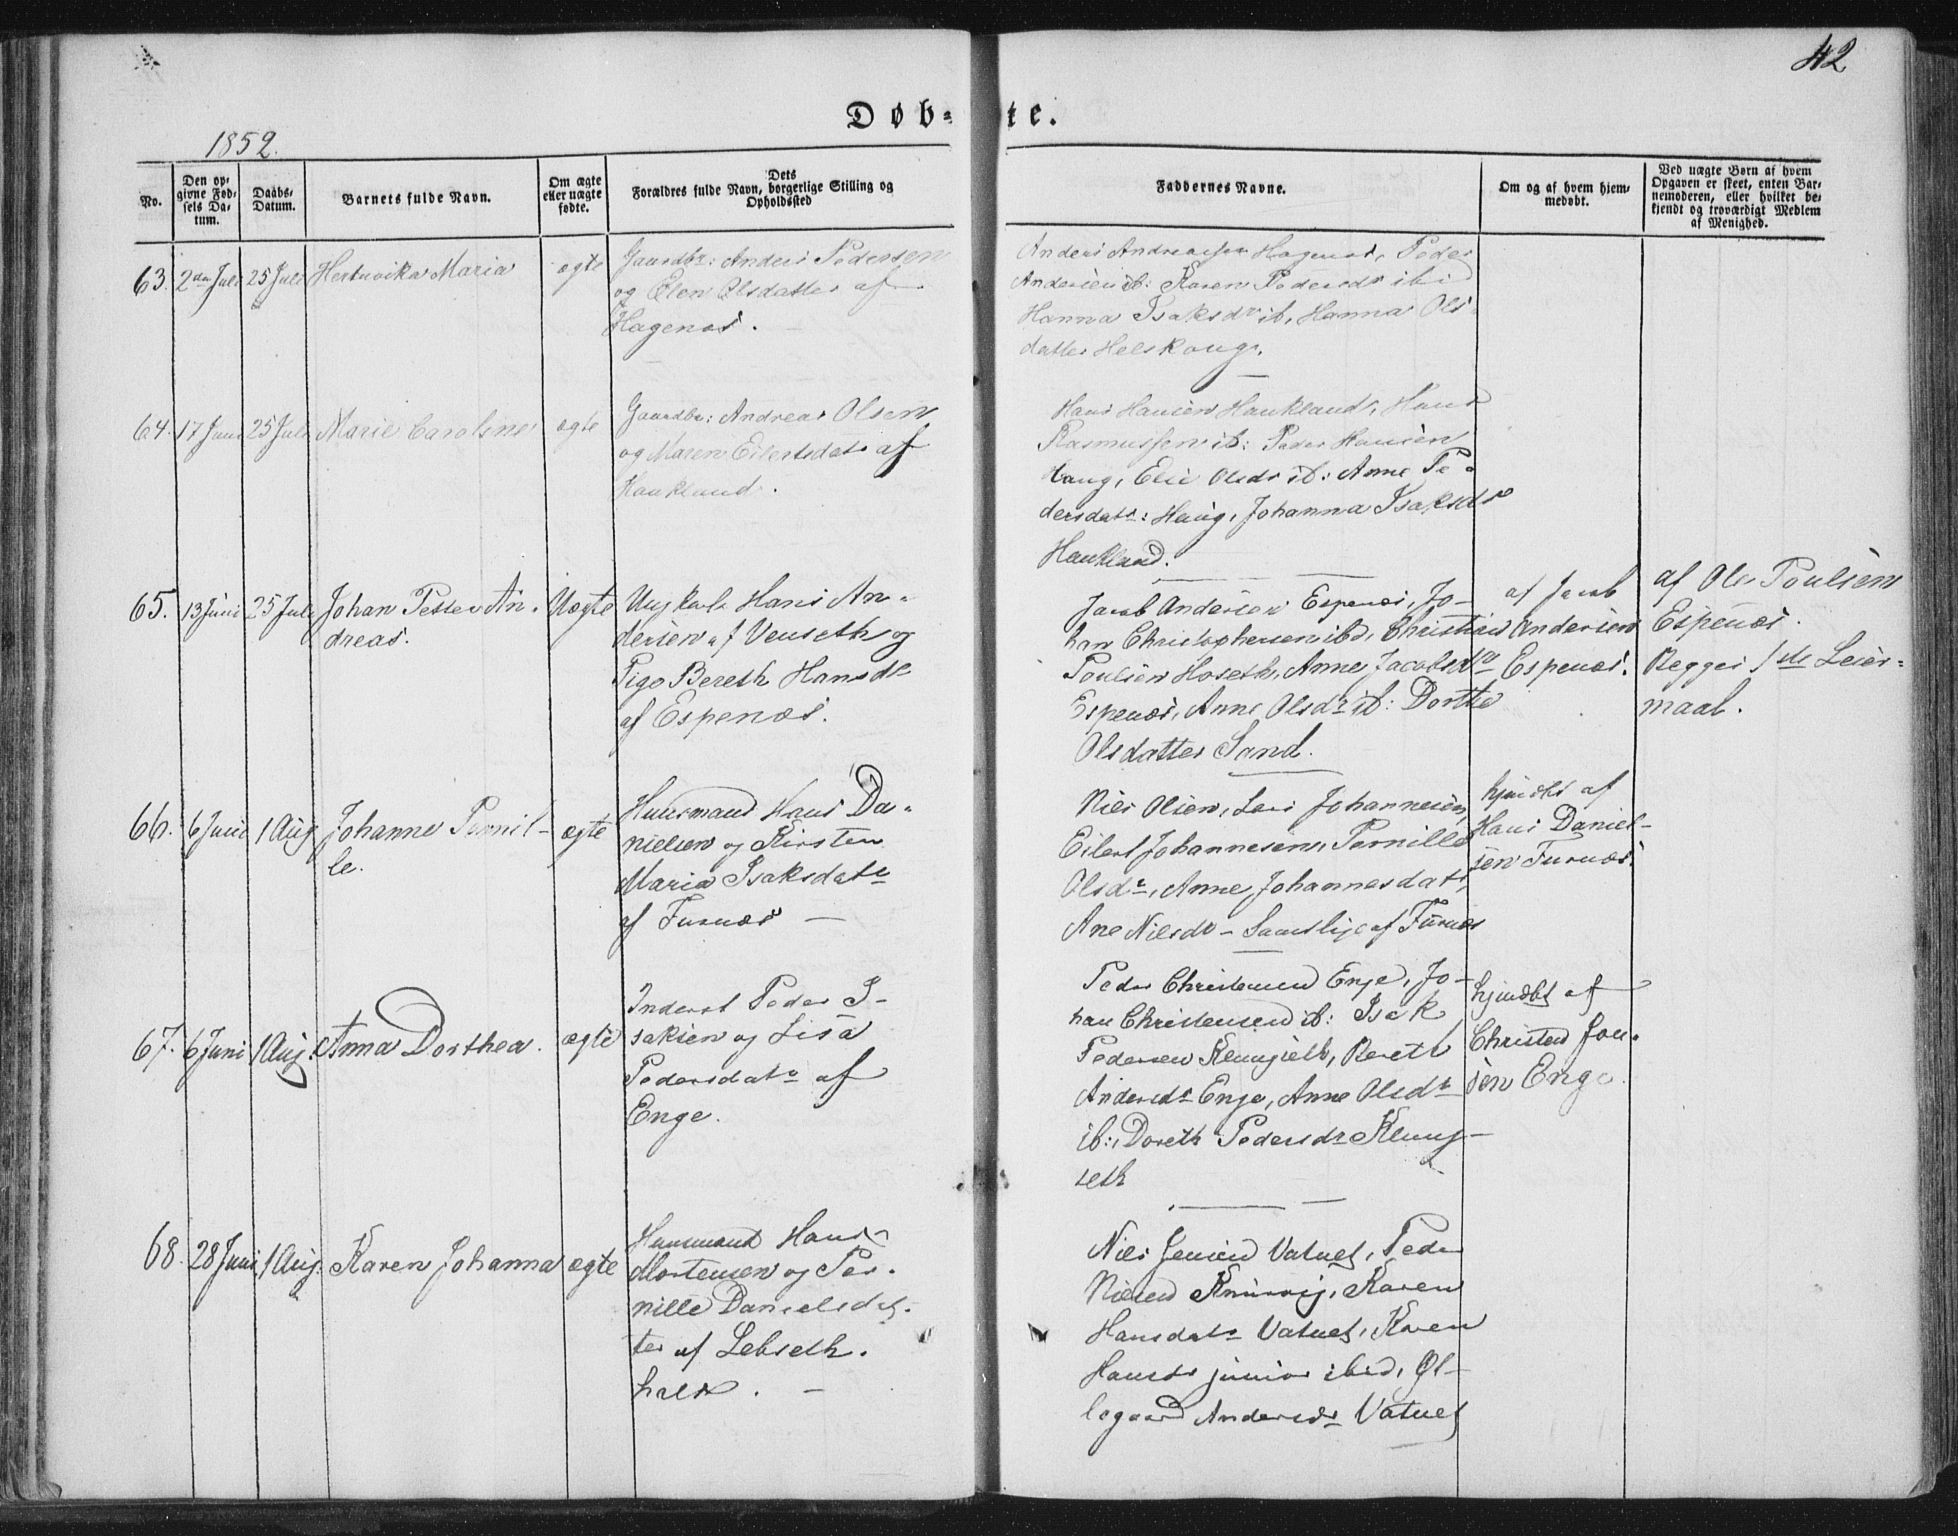 42
Døb-te.
1852.
No.
Den op-
givne Fød-
sels Da-
tum.
Daabs-
Datum.
Barnets fulde Navn.
Om ægte
eller uægte
fødte.
Dets
Forældres fulde Navn, borgerlige Stilling og
Opholdssted
Faddernes Navne.
Om og af hvem hjem-
medøbt.
Ved uægte Børn af hvem
Opgaven er skeet, enten Bar-
nemoderen, eller hvilket be-
kjendt og troværdigt Medlem
af Menighed.
63. 2den Juli 25 Juli Hertnvika Maria ægte
Gaardbr: Anders Pedersen
og Elen Olsdatter af
Hagenæs.
Anders Andreassen Hagenæs, Peder
Andersen ib: Karen Pedersdr ibi
Hanna Isaksdr ib, Hanna Ols-
datter Helskoug.
64. 17 Juni 25 Juli Marie Caroline ægte
Gaardbr: Andreas Olsen
og Maren Eilertsdatr af
Haukland.
Hans Hansen Haukland, Hans
Rasmussen ib: Peder Hansen
Haug, Elie Olsdr ib: Anne Pe-
dersdatr: Haug, Johanna Isaksdr
Haukland.
65. 13 Juni 25 Juli Johan Petter An-
dreas.
Uægte
Ungkarl Hans An-
dersen af Venseth og
Pige Bereth Hansdr
af Espenæs.
Jacob Andersen Espenæs, Jo-
han Christophersen ibd, Christian
Poulsen Hoseth, Anne Jacobsdr
Espenæs, Anne Olsdr ib: Dorthe
Olsdatter Sand.
af Jacob
Andersen
Espenæs.
af Ole Poulsen
Espenæs.
Begges 1ste Leier-
maal.
66. 6 Juni 1 Aug Johanne Pernil-
le.
ægte
Huusmand Hans Da-
nielsen og Kirsten
Maria Isaksdatr
af Furnæs —
Niels Olsen, Lars Johannesen,
Eilert Johannesen, Pernille
Olsdr, Anne Johannesdatr,
Ane Nilsdr – Samtlige af Furnæs
hjemdbt af
Hans Daniel-
sen Furnæs.
67. 6 Juni 1 Aug. Anna Dorthea. ægte
Inderst Peder I-
saksen og Lisa
Pedersdatr af
Enge.
Peder Christensen Enge, Jo-
han Christensen ib: Isak
Pedersen Klungseth, Bereth
Andersdr Enge, Anne Olsdr
ib:, Doreth Pedersdr Klung-
seth
hjemdbt af
Christen Jon-
sen Enge.
68. 28 Juni 1 Aug. Karen Johanna ægte
Huusmand Hans
Mortensen og Per-
nille Danielsdat-
ter af Lebseth.
hals. —
Niels Jensen Vatnet, Peder
Nielsen Knurvig, Karen
Hansdatr Vatnet, Karen
Hansdr junior ibid, Øl-
legaard Andersdr Vatnet